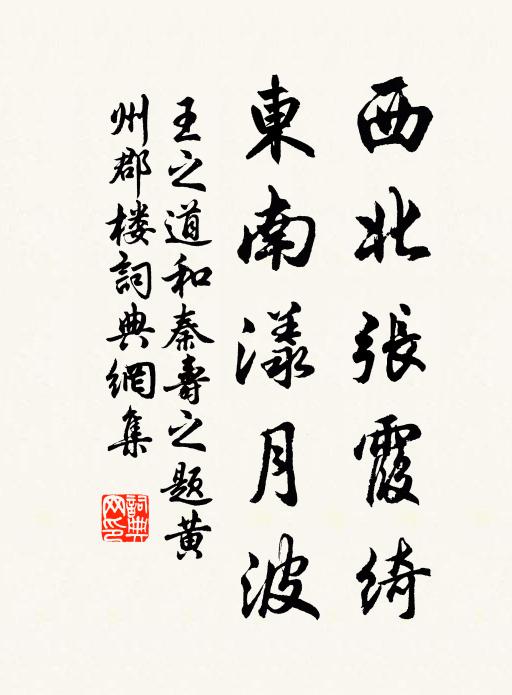 西北張霞綺
東南漾月波
王之道和秦壽之題黄
州郡楼詞典網集
詞典网印